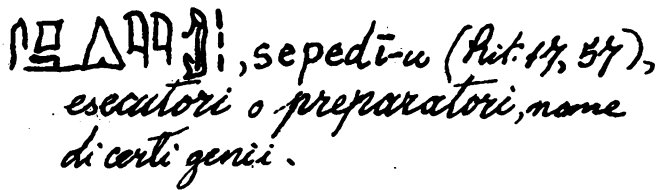 , sepedī-u (Rit. 17, 57),
esecutori o preparatori, nome
di certi genii.